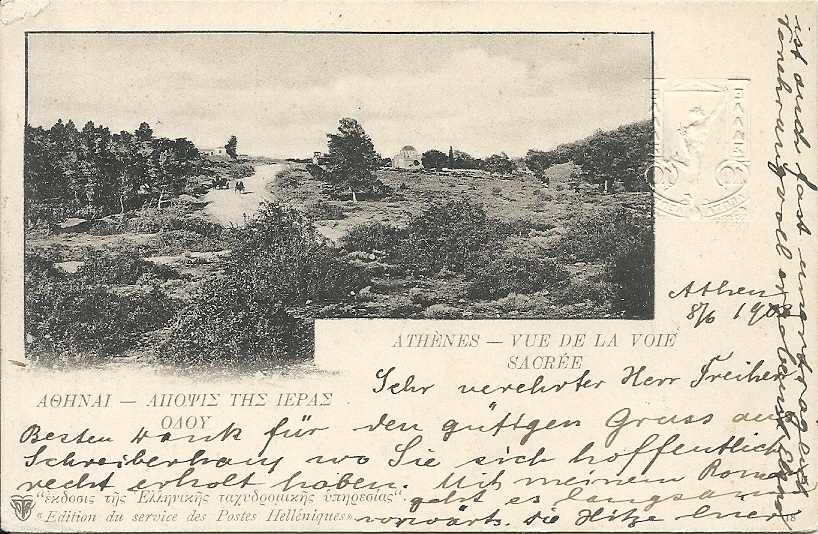 ΕΛΛΑΣ
ATHÈNES — VUE DE LA VOIE
SACRÉE
ΑΘΗΝΑΙ — ΑΠΟΨΙΣ ΤΗΣ ΙΕΡΑΣ
ΟΔΟΥ
Athen
8/6 190
Sehr verehrter Herr Freiherr
Besten Dank für den gütigen Gruss aus
Schreiberhau, wo Sie sich hoffentlich
recht erholt haben. Mit meinem Roman
geht es langsam
vorwärts. Die Hitze hier
ist auch fast unerträglich
"ἔκδοσις τῆς Ἑλληνικῆς ταχυδρομικῆς ὑπηρεσίας".
« Edition du service des Postes Helléniques »
18